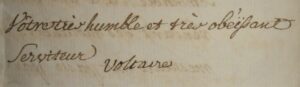 Vôtre tres humble et très obéissant
Serviteur Voltaire